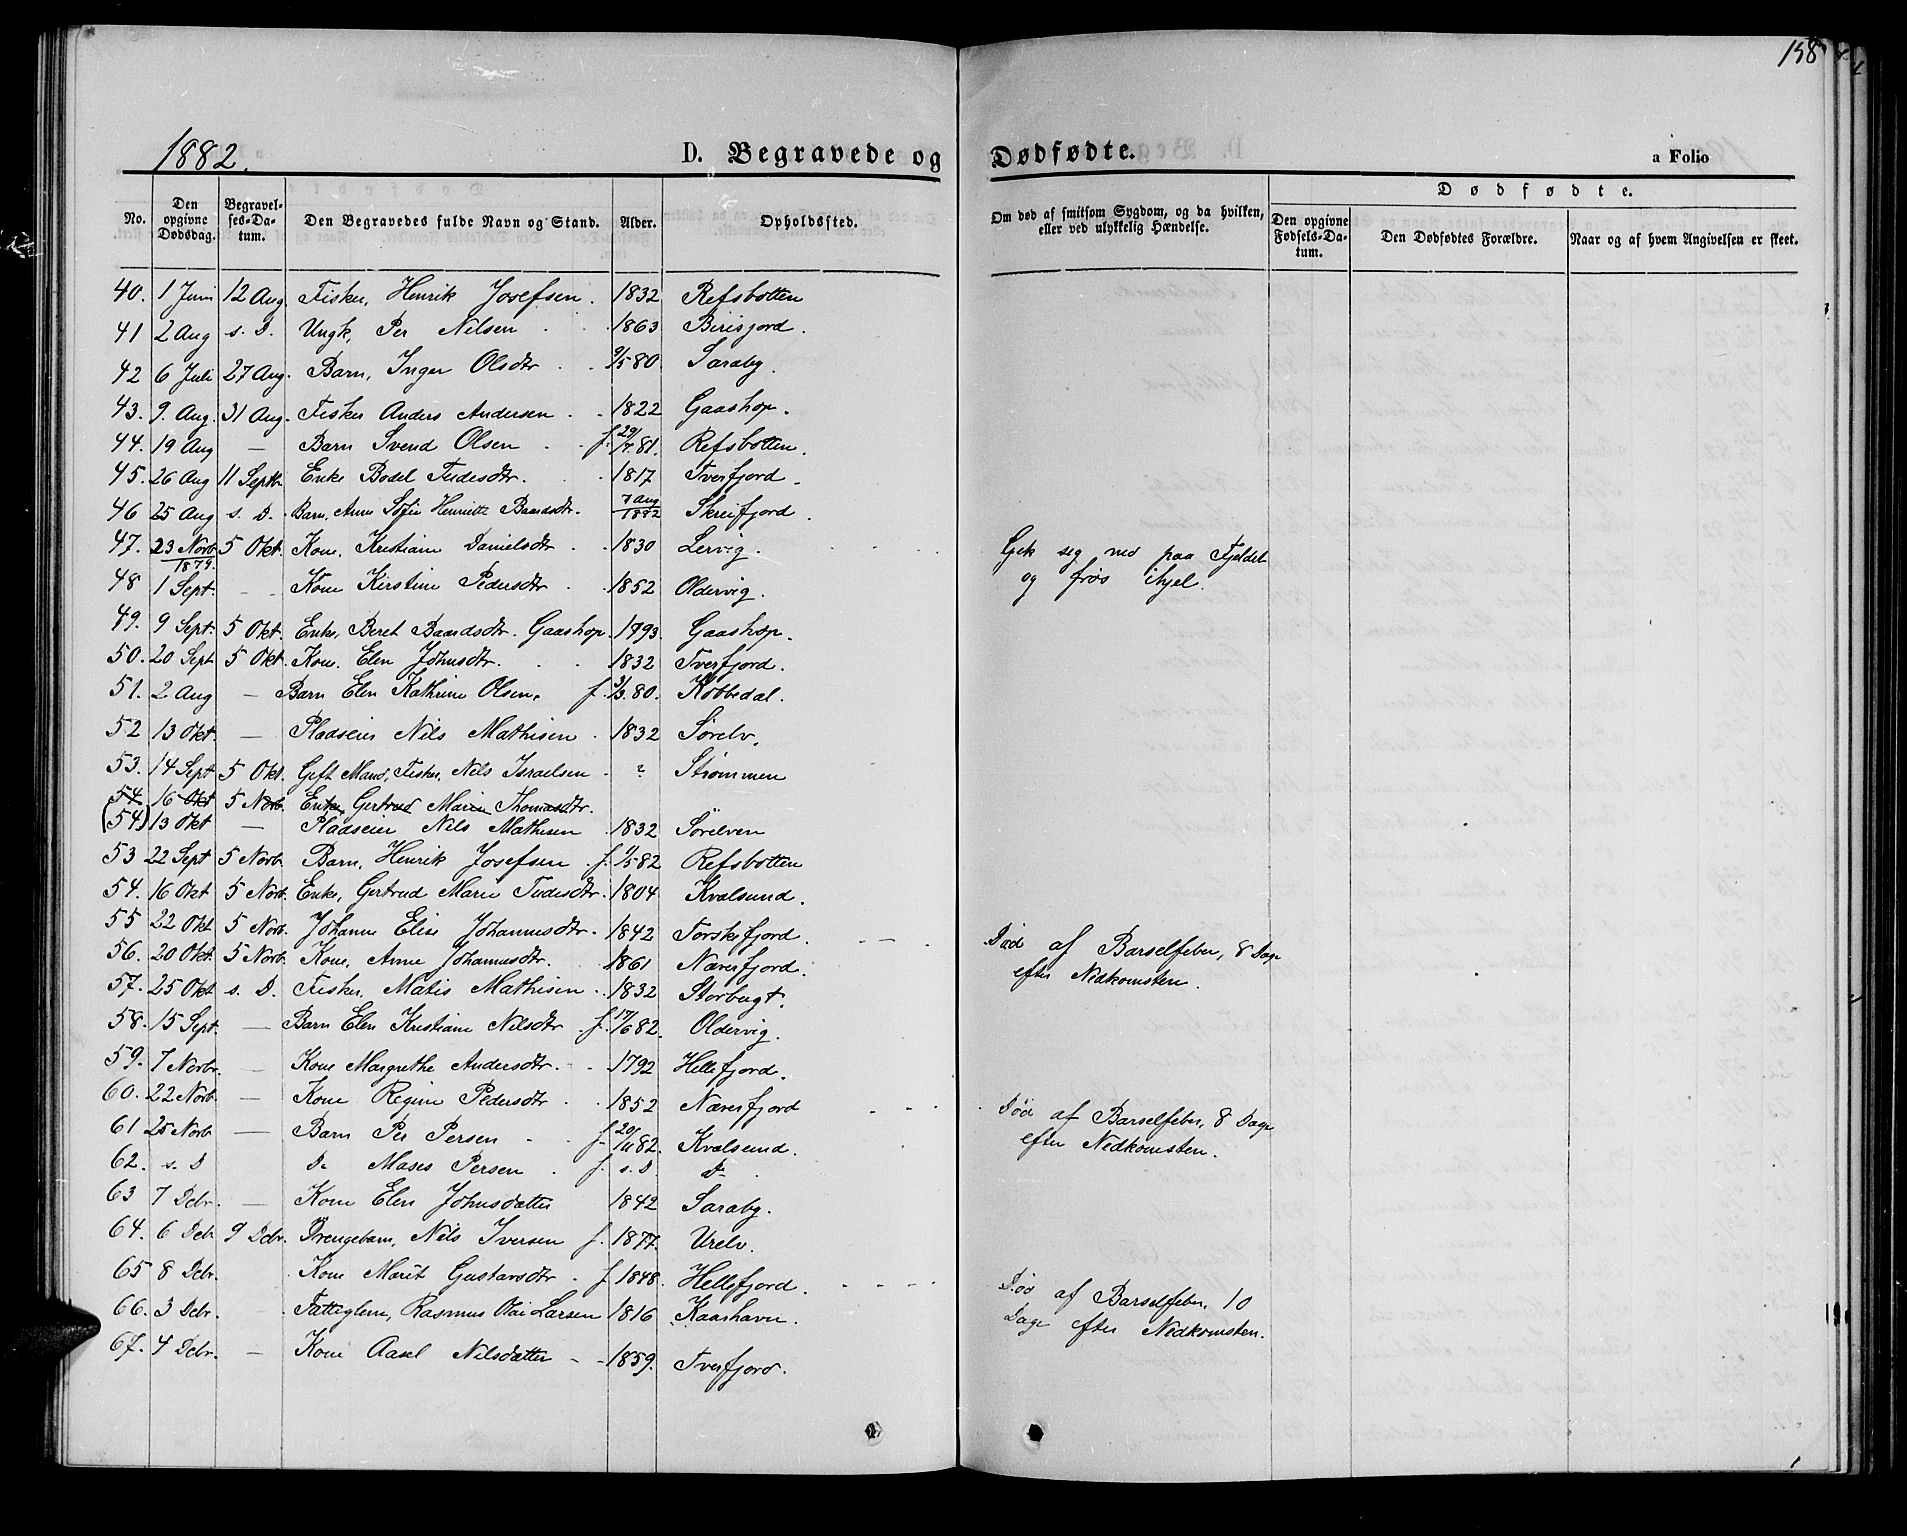 158
1882.
D. Begravede og Dødfødte.
a Folio
No.
Den opgivne Dødsdag.
Begravelses-Datum.
Den Begravedes fulde Navn og Stand.
Alder.
Opholdssted.
Om død af smitsom Sygdom, og da hvilken, eller ved ulykkelig Hændelse.
Dødfødte.
Den opgivne Fødsels-Datum.
Den Dødfødtes Forældre.
Naar og af hvem Angivelsen er skeet.
40. 1 Juni 12 Aug. Fisker, Henrik Josefsen. 1832 Refsbotten
41 2 Aug s. D. Ungk, Per Nilsen 1863 Birisjord.
42 6 Juli 27 Aug. Barn, Inger Olsdtr 9/5 80 Saraby.
43. 9. Aug. 31 Aug. Fisker Anders Andersen 1822 Gaashop.
44. 19 Aug — Barn Svend Olsen f. 29/7 81. Refsbotten.
45. 26 Aug 11 Septb. Enke Bodel Tudesdtr. 1817 Tverfjord
46 25 Aug s. D. Barn, Anne Sofie Henriette Baardsdtr. 7 Aug 1882 Skreifjord.
47. 23 Novb. 1879. 5 Okt. Kone, Kristiane Danielsdtr 1830 Lervig. Gik seg ned paa Fjeldet og frøs ihjel.
48 1 Sept. Kone Kirstine Pedersdtr 1852 Oldervig.
49. 9 Sept. 5 Okt. Enke, Beret Baardsdtr. Gaashop. 1793. Gaashop.
50. 20 Sept 5 Okt. Kone. Elen Johnsdtr. 1832 Tverfjord.
51. 2 Aug — Barn Elen Kathrine Olsen, f. 3/3. 80. Kobbedal.
52 13 Okt. — Pladseier Nils Mathisen 1832 Sørelv.
53. 14 Sept 5 Okt. Gift Mand, Fisker, Nils Israelsen ? Strømmen
54 16 Okt 5 Novb. Enke, Gertrud Marie Thomasdtr.
(54) 13 Okt — Pladseier Nils Mathisen 1832 Sørelven
53 22 Sept 5 Novb. Barn, Henrik Josefsen f. 1/5 82 Refsbotten
54. 16 Okt 5 Novb. Enke, Gertrud Marie Tudesdtr. 1804 Kvalsund.
55 22 Okt 5 Novb. Johanne Elise Johannesdtr. 1842 Torskefjord. Død af Barselfeber, 8 Dage efter Nedkomsten.
56. 20 Okt. 5 Novb. Kone, Anne Johannesdtr. 1861 Næverfjord.
57. 25 Okt s. D. Fisker. Matis Mathisen 1832 Storbugt.
58. 15 Sept. — Barn Elen Kristiane Nilsdtr f. 17/6 82. Oldervig.
59. 7 Novbr. — Kone Margrethe Andersdtr. 1792 Hellefjord.
60. 22 Novb. — Kone Regine Pedersdtr 1852 Næverfjord Død af Barselfeber, 8 Dage efter Nedkomsten.
61 25 Novb — Barn Per Persen f. 20/11 82. Kvalsund.
62. s. D D. Moses Persen f. s. D D.
63 7 Debr. — Kone Elen Johnsdatter 1842 Saraby.
64. 6 Debr 9 Debr. Drengebarn, Nils Iversen f. 1877. Urelv.
65 8 Debr. Kone Marit Gustavsdtr. f. 1848. Hellefjord. Død af Barselfeber, 10 Dage efter Nedkomsten.
66. 3 Debr. Fattiglem, Rasmus Olai Larsen 1816 Kaarhavn.
67. 4 Debr. — Kone Aasel Nilsdatter 1859. Tverfjord.